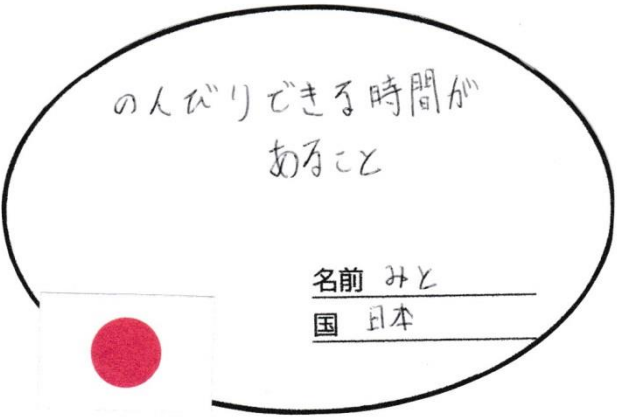 のんびりできる時間が
あること
名前 みと
国 日本